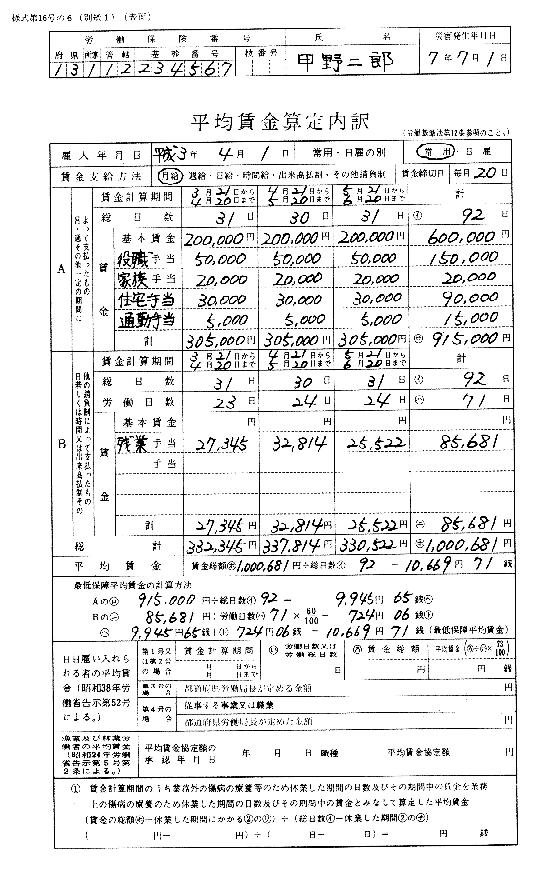 様式第16号の6(別紙1)(表面)
労働保険番号 氏名 災害発生年月日
府県 所掌 管轄 基幹番号 枝番号
1 3 1 1 2 2 3 4 5 6 7 甲野二郎 7年7月1日
平均賃金算定内訳
(労働基準法第12条参照のこと。)
雇入年月日 平成3年4月1日 常用・日雇の別 常用・日雇
賃金支給方法 月給・週給・日給・時間給・出来高払制・その他請負制 賃金締切日 毎月20日
A
賃金計算期間 3月21日から4月20日まで 4月21日から5月20日まで 5月21日から6月20日まで 計
総日数 31日 30日 31日 ㋑ 92日
賃金
基本賃金 200,000円 200,000円 200,000円 600,000円
役職手当 50,000 50,000 50,000 150,000
家族手当 20,000 20,000 20,000 20,000
住宅手当 30,000 30,000 30,000 90,000
通勤手当 5,000 5,000 5,000 15,000
計 305,000円 305,000円 305,000円 ㋺ 915,000円
B
賃金計算期間 3月21日から4月20日まで 4月21日から5月20日まで 5月21日から6月20日まで 計
総日数 31日 30日 31日 ㋑ 92日
労働日数 23日 24日 24日 ㋩ 71日
賃金
基本賃金 円 円 円 円
残業手当 27,345 32,814 25,522 85,681
手当
計 27,345円 32,814円 25,522円 ㋥ 85,681円
総計 332,345円 337,814円 330,522円 ㋭ 1,000,681円
平均賃金 賃金総額㋭1,000,681円÷総日数㋑ 92 = 10,669円 71銭
最低保障平均賃金の計算方法
Aの㋺ 915,000円÷総日数㋑ 92 = 9,945円 65銭㋬
Bの㋥ 85,681円÷労働日数㋩ 71×60/100= 724円 06銭㋣
㋬ 9,945円65銭+㋣ 724円06銭= 10,669円 71銭(最低保障平均賃金)
日日雇い入れられる者の平均賃金(昭和38年労働省告示第52号による。)
第1号又は第2号の場合 賃金計算期間 労働日数又は労働総日数 賃金総額 平均賃金
月 日から 月 日まで 日 円 円 銭
第3号の場合 都道府県労働局長が定める金額 円
第4号の場合 従事する事業又は職業
都道府県労働局長が定めた金額 円
漁業及び林業労働者の平均賃金(昭和24年労働省告示第5号第2条による。)
平均賃金協定額の承認年月日 年 月 日 職種 平均賃金協定額 円
① 賃金計算期間のうち業務外の傷病の療養等のため休業した期間の日数及びその期間中の賃金を業務
上の傷病の療養のため休業した期間の日数及びその期間中の賃金とみなして算定した平均賃金
( 円- 円)÷( 日- 日)= 円 銭